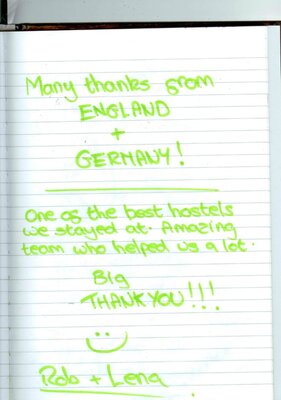 Many thanks from
ENGLAND
+
GERMANY!
One of the best hostels
we stayed at. Amazing
team who helped us a lot.
Big
THANK YOU!!!
Rob + Lena